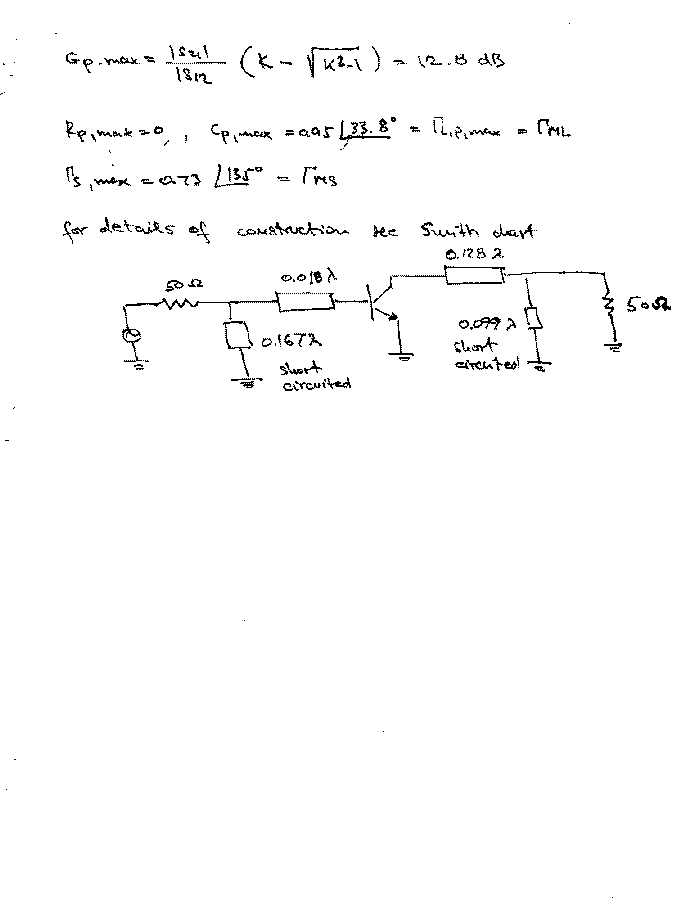 Gp.max = |S21| / |S12 (K - √K²-1) = 12.8 dB
Rp,max = 0, Cp,max = 0.95 ∠33.8° = ΓL,p,max = ΓML
Γs,max = 0.73 ∠135° = ΓMS
for details of construction see Smith chart
50 Ω
0.018 λ
0.128 λ
50Ω
0.167λ
short
circuited
0.099 λ
short
circuited